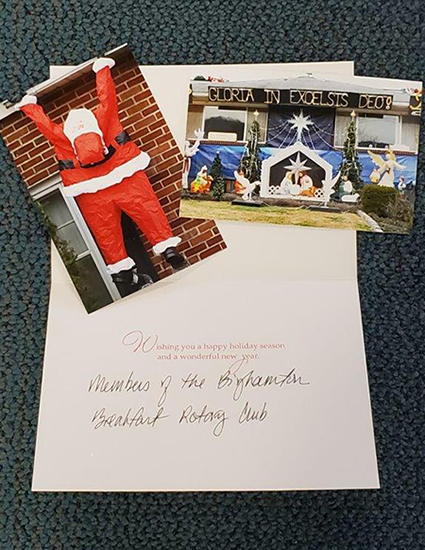 GLORIA IN EXCELSIS DEO!
Wishing you a happy holiday season
and a wonderful new year.
Members of the Binghamton
Breakfast Rotary Club